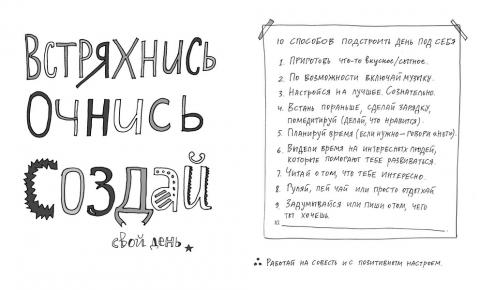 Встряхнись
Очнись
Создай
свой день
10 способов подстроить день под себя
1. Приготовь что-то вкусное/сытное.
2. По возможности включай музыку.
3. Настройся на лучшее. Сознательно.
4. Встань пораньше, сделай зарядку,
помедитируй (делай, что нравится).
5. Планируй время (если нужно – говори «нет»).
6. Выдели время на интересных людей,
которые помогают тебе развиваться.
7. Читай о том, что тебе интересно.
8. Гуляй, пей чай или просто отдыхай
9. Задумывайся или пиши о том, чего
ты хочешь.
10.
Работай на совесть и с позитивным настроем.